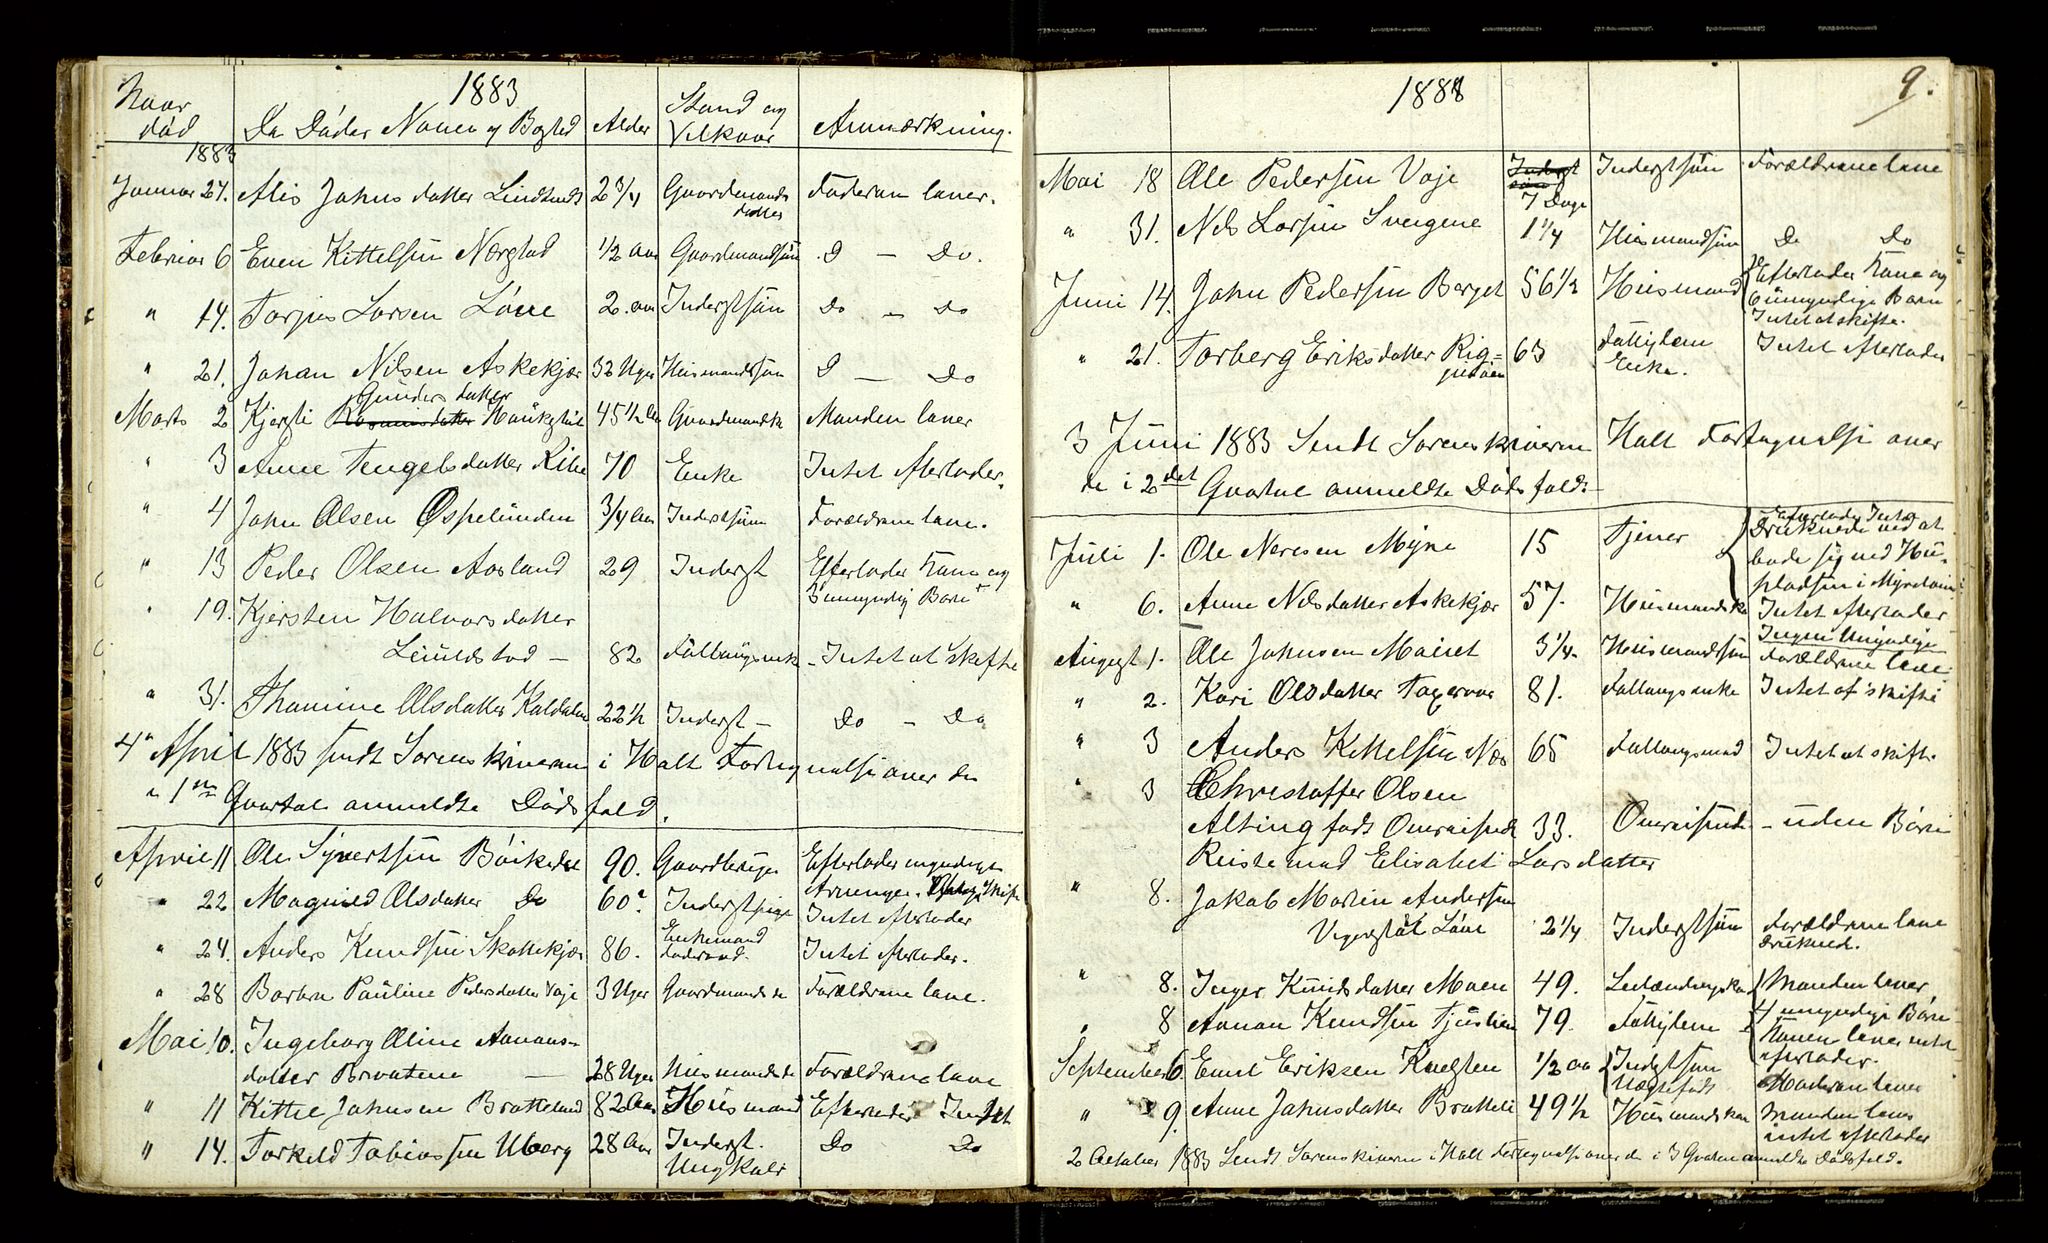 1883
Naar død
De Dødes Navn og Bosted
Alder
Stand og Vilkaar
Anmærkning.
1883
Januar 27. Alis Jahnsdatter Lindtveit 2 3/4 Gaardmands datter Faderen lever.
Februar 6 Even Kittelsen Nærstad 1/2 Aar Gaardmandssøn D — Do.
" 14. Tarjus Larsen Løvve 2. aar Inderstsøn Do — Do
" 21. Johan Nilsen Askekjær 32 Uger Huusmandssøn D — Do
Gunders datter
Marts 2 Kjersti Haukestøl 45 1/2 Aar Gaardmandsk Manden lever
" 3 Anne Tengelsdatter Ribe 70 Enke Intet efterlader.
" 4 John Olsen Ospelunden 3/4 Aar Inderstsøn Forældrene leve.
" 13 Peder Olsen Aasland 29 Inderst Efterlader Kone og
3 umyndig Børn
" 19. Kjersten Halvorsdatter
— 82 Fattigenke - Intet at Skifte
" 31. Thomine Olsdatter Kaldalen 22 1/2 Inderst — Do — Do
4 April 1883 sendt Sorenskriveren i Holt Fortegnelse over de
i 1ste Qvartal anmeldte Dødsfald.
April 11 Ole Syvertsen Bøikedal 90. Gaardbruger Efterlader myndige
Arvinger.
" 22 Magnild Olsdatter Do 60. Inderstpige Intet efterlader
" 24. Anders Knudsen Skottekjær 86. Enkemand Intet efterlader.
" 28 Barbra Pauline Pedersdatter Voje 3 Uger Gaardmands d Forældrene leve.
Mai 10. Ingeborg Oline Aanons-
datter Bråtene — 28 Uger Huusmands d Forældrene leve
" 11 Kittil Johnsen Bratteland 82 Aar Huusmand Efterlader Intet
" 14. Torkild Tobiassen Uberg 28 Aar Inderst. Do Do
Ungkarl
1888
9.
Mai 18 Ole Pedersen Voje 7 Dage Inderstsøn Forældrene leve
" 31. Nils Larsen Svengene 1 1/4 Huusmandssøn Do Do
Juni 14. John Pedersen Berget 56 1/2 Huusmand Efterlader Kone og
6 umyndige Børn
Intet at skifte.
" 21. Torberg Eriksdatter Rig= 63 Fattiglem Intet efterlader
Enke.
3 Juni 1883 Sendt Sorenskriveren Holt Fortegnelse over
de i 2det Qvartal anmeldte Dødsfald.
Juli 1. Ole Neresen Myre 15 Tjener Efterlader Intet
Druknede ved at
bade sig ved Huus-
pladsen i
" 6. Anne Nilsdatter Askekjær 57. Huusmandsko Intet efterlader
Ingen Umyndige
August 1. Ole Johnsen Moinet 3 1/4. Huusmandssøn Forældrene leve.
" 2. Kari Olsdatter 81. Fattigenke Intet at skifte
" 3 Anders Kittelsen Næs 65 Fattigmand Intet at skifte
" 3 Christoffer Olsen
Alting født Omreisende 33. Omreisende - uden Børn
Reiste med Elisabet Larsdatter
" 8. Jakob Martin Andersen
Vegerstøl Løvve 2 1/4 Inderstsøn Forældrene leve
druknede.
" 8. Inger Knudsdatter Moen 49. Manden lever
4 umyndige Børn
" 8 Aanon Knudsen 79. Fattiglem Konen lever intet
efterlader.
September 6. Emil Eriksen Knesten 1/2 aar Inderstsøn Moderen lever
Uægtefødt
" 9. Anne Johnsdatter Bratteli 49 1/2 Huusmandskone Manden lever
intet efterlader
2 October 1883 Sendt Sorenskriveren i Holt Fortegnelse over de i 3 Qvartal anmeldte Dødsfald.